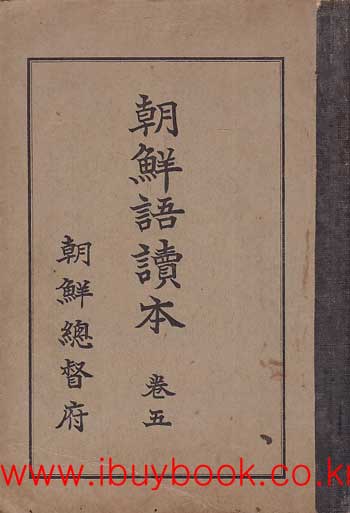 朝鮮語讀本 卷五
朝鮮總督府
www.ibuybook.co.kr